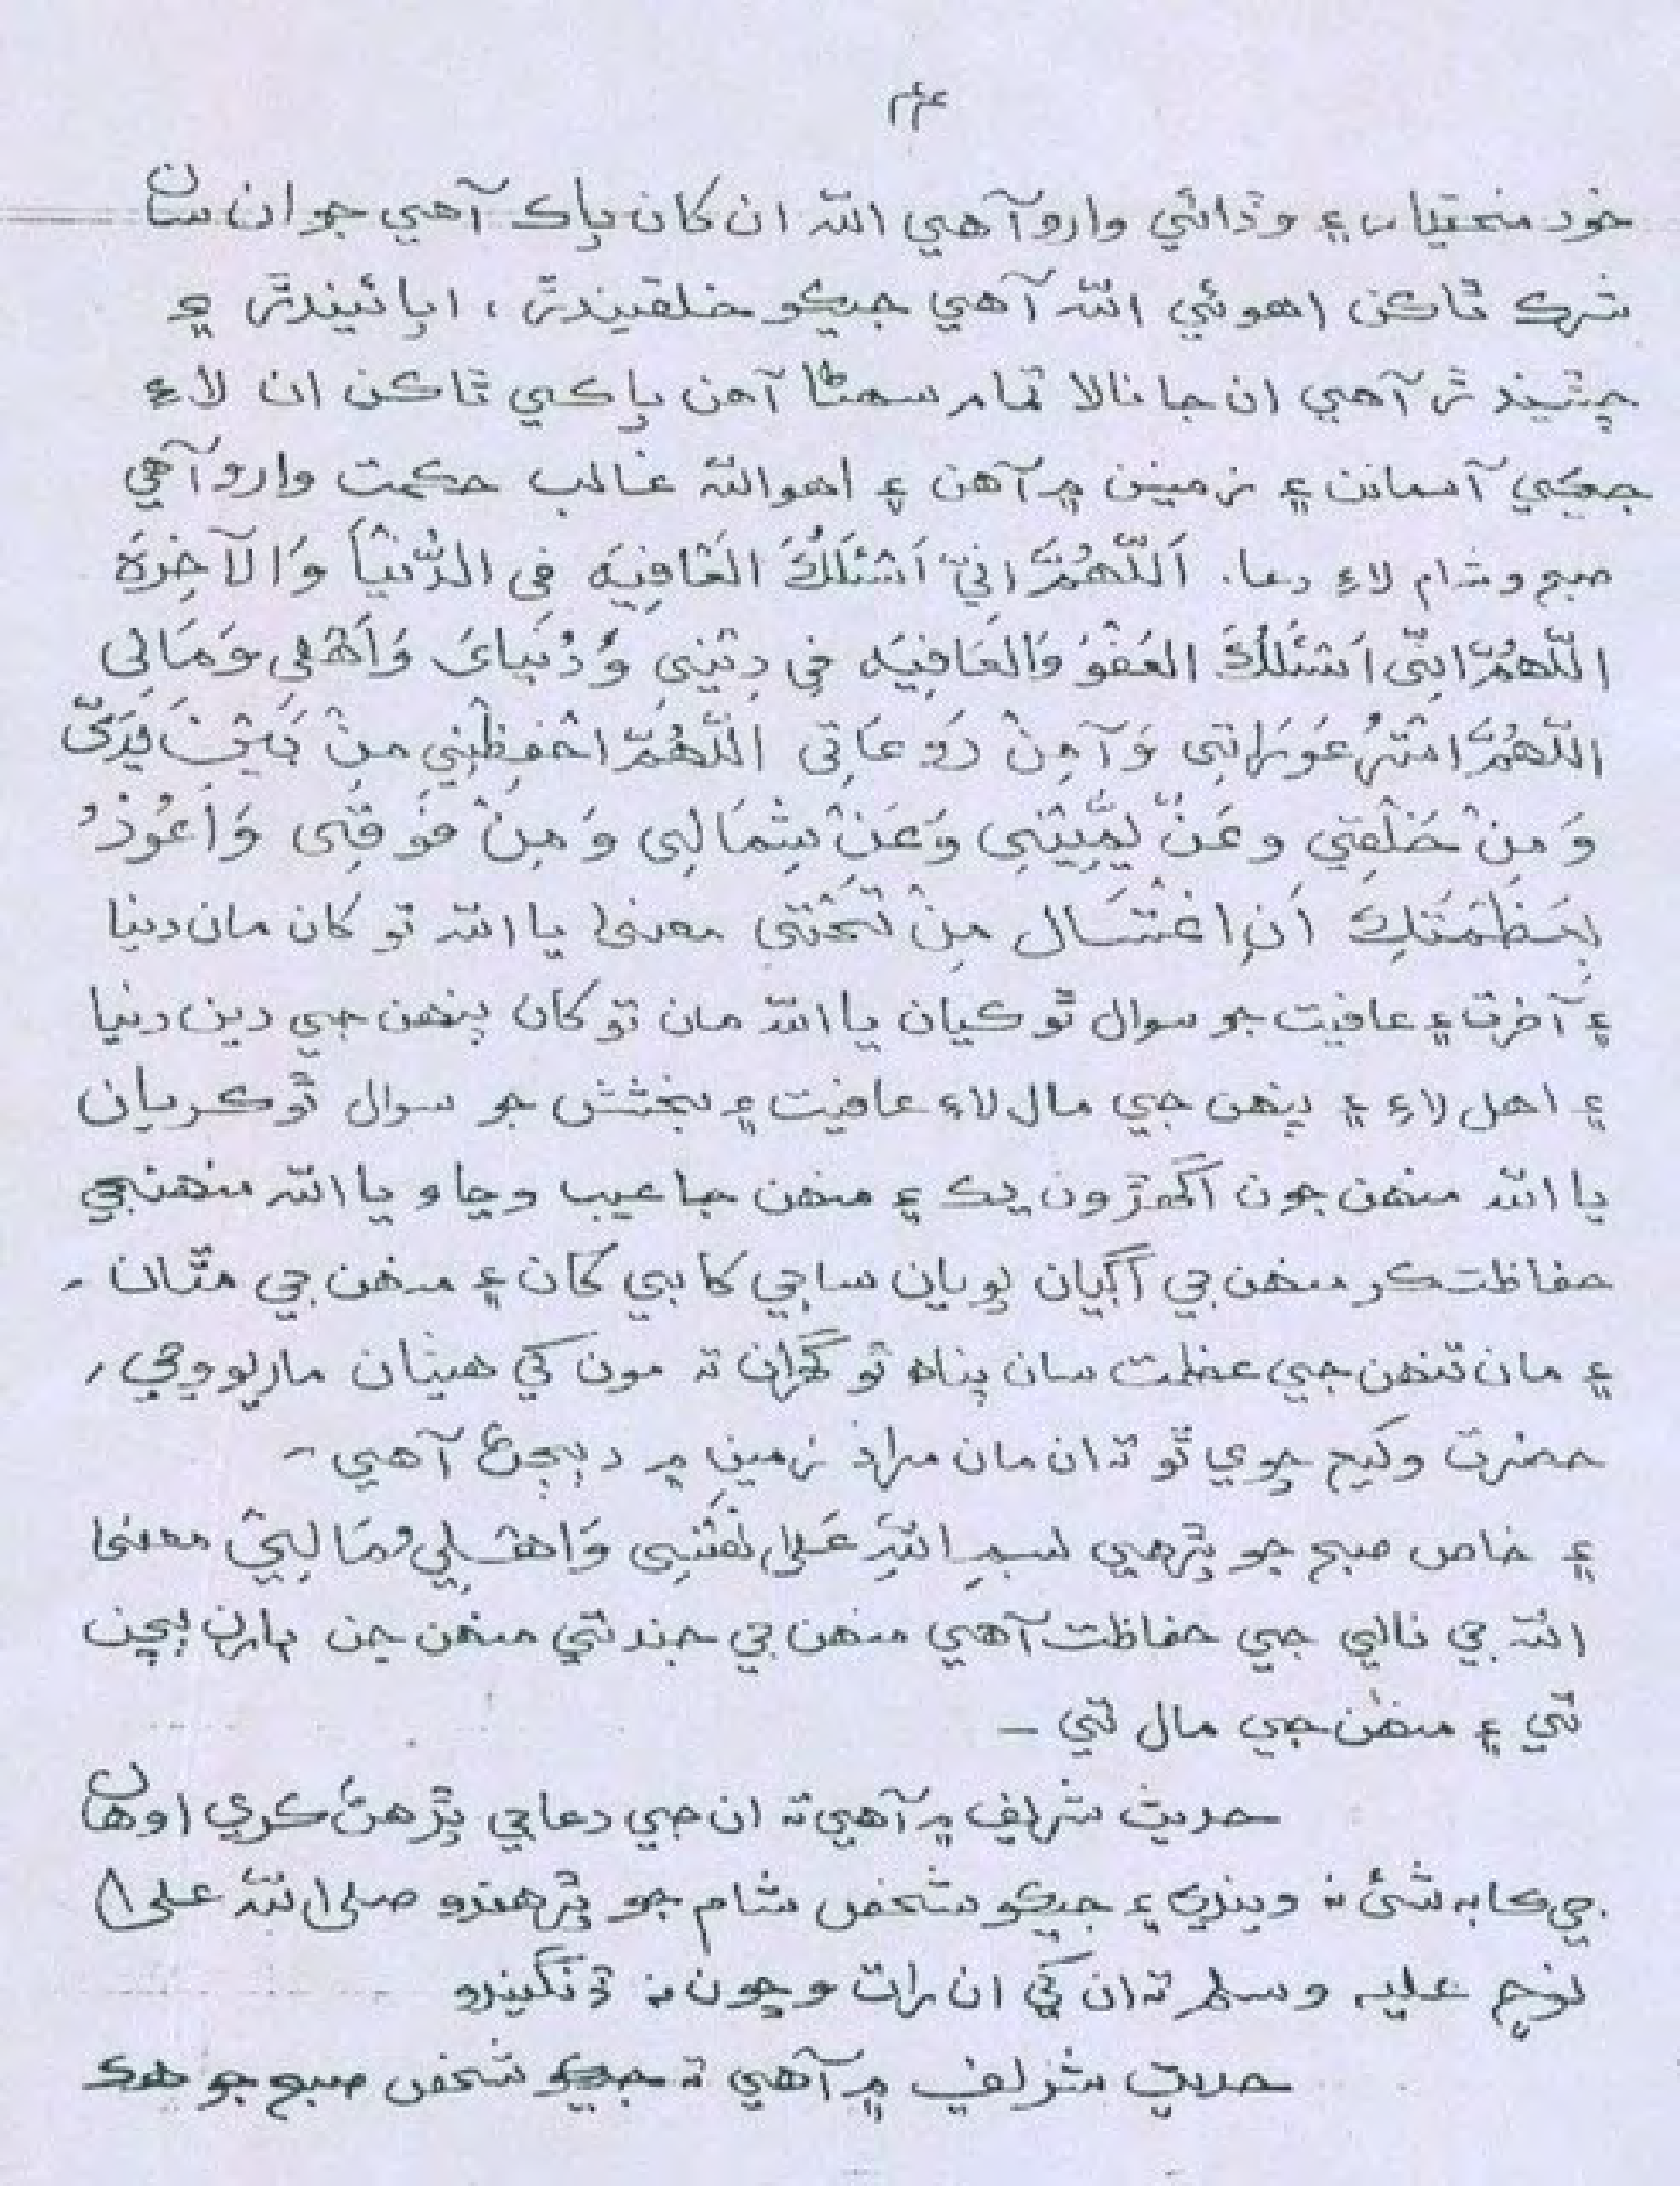 ۴۴
خود مختياب ۽ وڏائي وارو آهي الله ان کان پاڪ آهي جو ان سان
شرڪ ٿا ڪن اهوئي الله آهي جيڪو خلقيندڙ، اپائيندڙ ۽
چٽيندڙ آهي ان جا نالا تمام سهڻا آهن پاڪي ٿا ڪن ان لاءِ
جيڪي آسمانن ۽ زمينن ۾ آهن ۽ اهو الله غالب حڪمت وارو آهي
صبح و شام لاءِ دعا. اَللّٰهُمَّ اِنِّيْ اَسْئَلُكَ العَافِيَه فِى الدُّنْيَا وَالآخِرَة
اللّٰهُمَّ اِنِّى اَسْئَلُكَ العَفْوَ وَالعَافِيَه فِي دِيْنِي وَدُنْيَاىَ وَاَهْلِى وَمَالِى
اللّٰهُمَّ اسْتُرْ عَوْرَاتِى وَآمِنْ رَوْعَاتِى اللّٰهُمَّ احْفِظْنِي مِنْ بَيْنِ يَدَىَّ
وَمِنْ خَلْفِي وعَنْ يَّمِيْنِي وَعَنْ شِمَالِى وَمِنْ فَوْقِى وَاَعُوْذُ
بِعَظْمَتِكَ اَنِ اغْتَسَال مِنْ تَحْتِي معنيٰ يا الله تو کان مان دنيا
۽ آخرت ۽ عافيت جو سوال ٿو ڪيان يا الله مان تو کان پنهن جي دين دنيا
۽ اهل لاءِ ۽ پنهن جي مال لاءِ عافيت ۽ بخشش جو سوال ٿو ڪريان
يا الله منهن جون اگهڙون ڍڪ ۽ منهن جا عيب وڃاو يا الله منهنجي
حفاظت ڪر منهن جي اڳيان پويان ساجي کاٻي کان ۽ منهن جي مٿان -
۽ مان تنهن جي عظمت سان پناه ٿو گهران ته مون کي هيٺان ماريو وڃي،
حضرت وکيع چوي ٿو ته ان مان مراد زمين ۾ دٻجڻ آهي -
۽ خاص صبح جو پڙهي بسمِ اللهِ عَلىٰ نَفْسِى وَاهْلِي وَمَالِيْ معنيٰ
الله جي نالي جي حفاظت آهي منهن جي جند تي منهن جن ٻارن ٻچن
تي ۽ منهن جي مال تي -
حديث شريف ۾ آهي ته ان جي دعا جي پڙهڻ ڪري اوهان
جي ڪا به شئ نه ويندي ۽ جيڪو شخص شام جو پڙهندو صلى الله علىٰ
نوح عليہ وسلم ته ان کي ان رات وڇون نه ڏنگيندو
حديث شريف ۾ آهي ته جيڪو شخص صبح جو هڪ